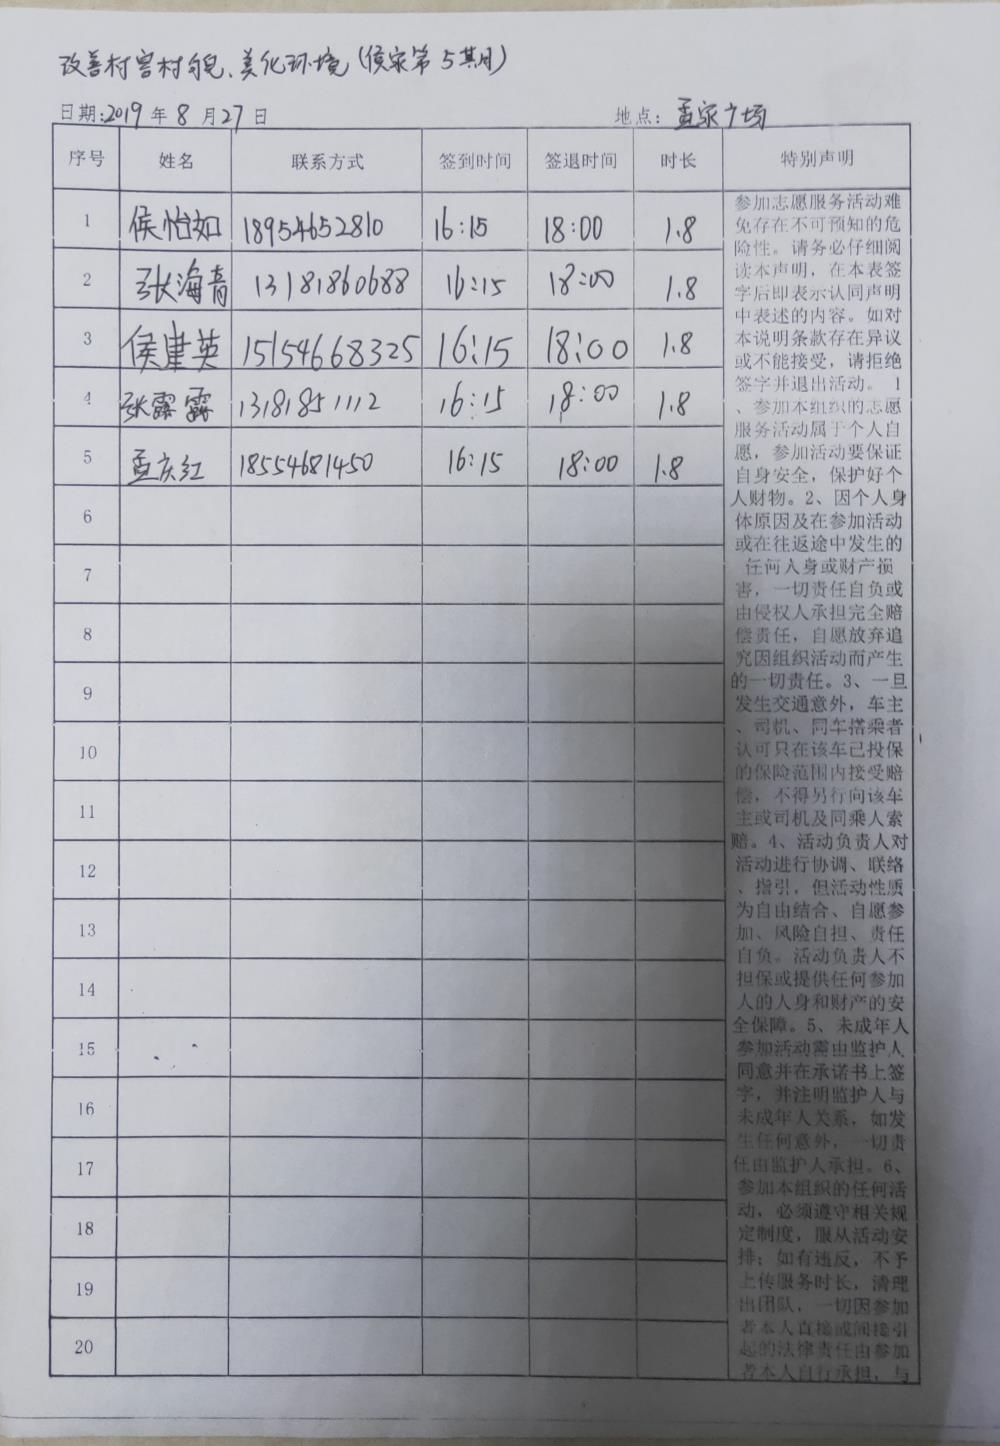 改善村容村貌、美化环境(侯家第5期)
日期:2019年8月27日 地点: 孟家广场
序号 姓名 联系方式 签到时间 签退时间 时长 特别声明
1 侯怡如 18954652810 16:15 18:00 1.8
2 张海青 13181860688 16:15 18:00 1.8
3 侯建英 15154668325 16:15 18:00 1.8
4 张露露 13181851112 16:15 18:00 1.8
5 孟庆红 18554681450 16:15 18:00 1.8
6
7
8
9
10
11
12
13
14
15
16
17
18
19
20
参加志愿服务活动难
免存在不可预知的危
险性。请务必仔细阅
读本声明,在本表签
字后即表示认同声明
中表述的内容。如对
本说明条款存在异议
或不能接受,请拒绝
签字并退出活动。 1
、参加本组织的志愿
服务活动属于个人自
愿,参加活动要保证
自身安全,保护好个
人财物。2、因个人身
体原因及在参加活动
或在往返途中发生的
任何人身或财产损
害,一切责任自负或
由侵权人承担完全赔
偿责任,自愿放弃追
究因组织活动而产生
的一切责任。3、一旦
发生交通意外,车主
、司机、同车搭乘者
认可只在该车已投保
的保险范围内接受赔
偿,不得另行向该车
主或司机及同乘人索
赔。4、活动负责人对
活动进行协调、联络
、指引,但活动性质
为自由结合、自愿参
加、风险自担、责任
自负。活动负责人不
担保或提供任何参加
人的人身和财产的安
全保障。5、未成年人
参加活动需由监护人
同意并在承诺书上签
字,并注明监护人与
未成年人关系,如发
生任何意外,一切责
任由监护人承担。6、
参加本组织的任何活
动,必须遵守相关规
定制度,服从活动安
排;如有违反,不予
上传服务时长,清理
出团队,一切因参加
者本人直接或间接引
起的法律责任由参加
者本人自行承担,与